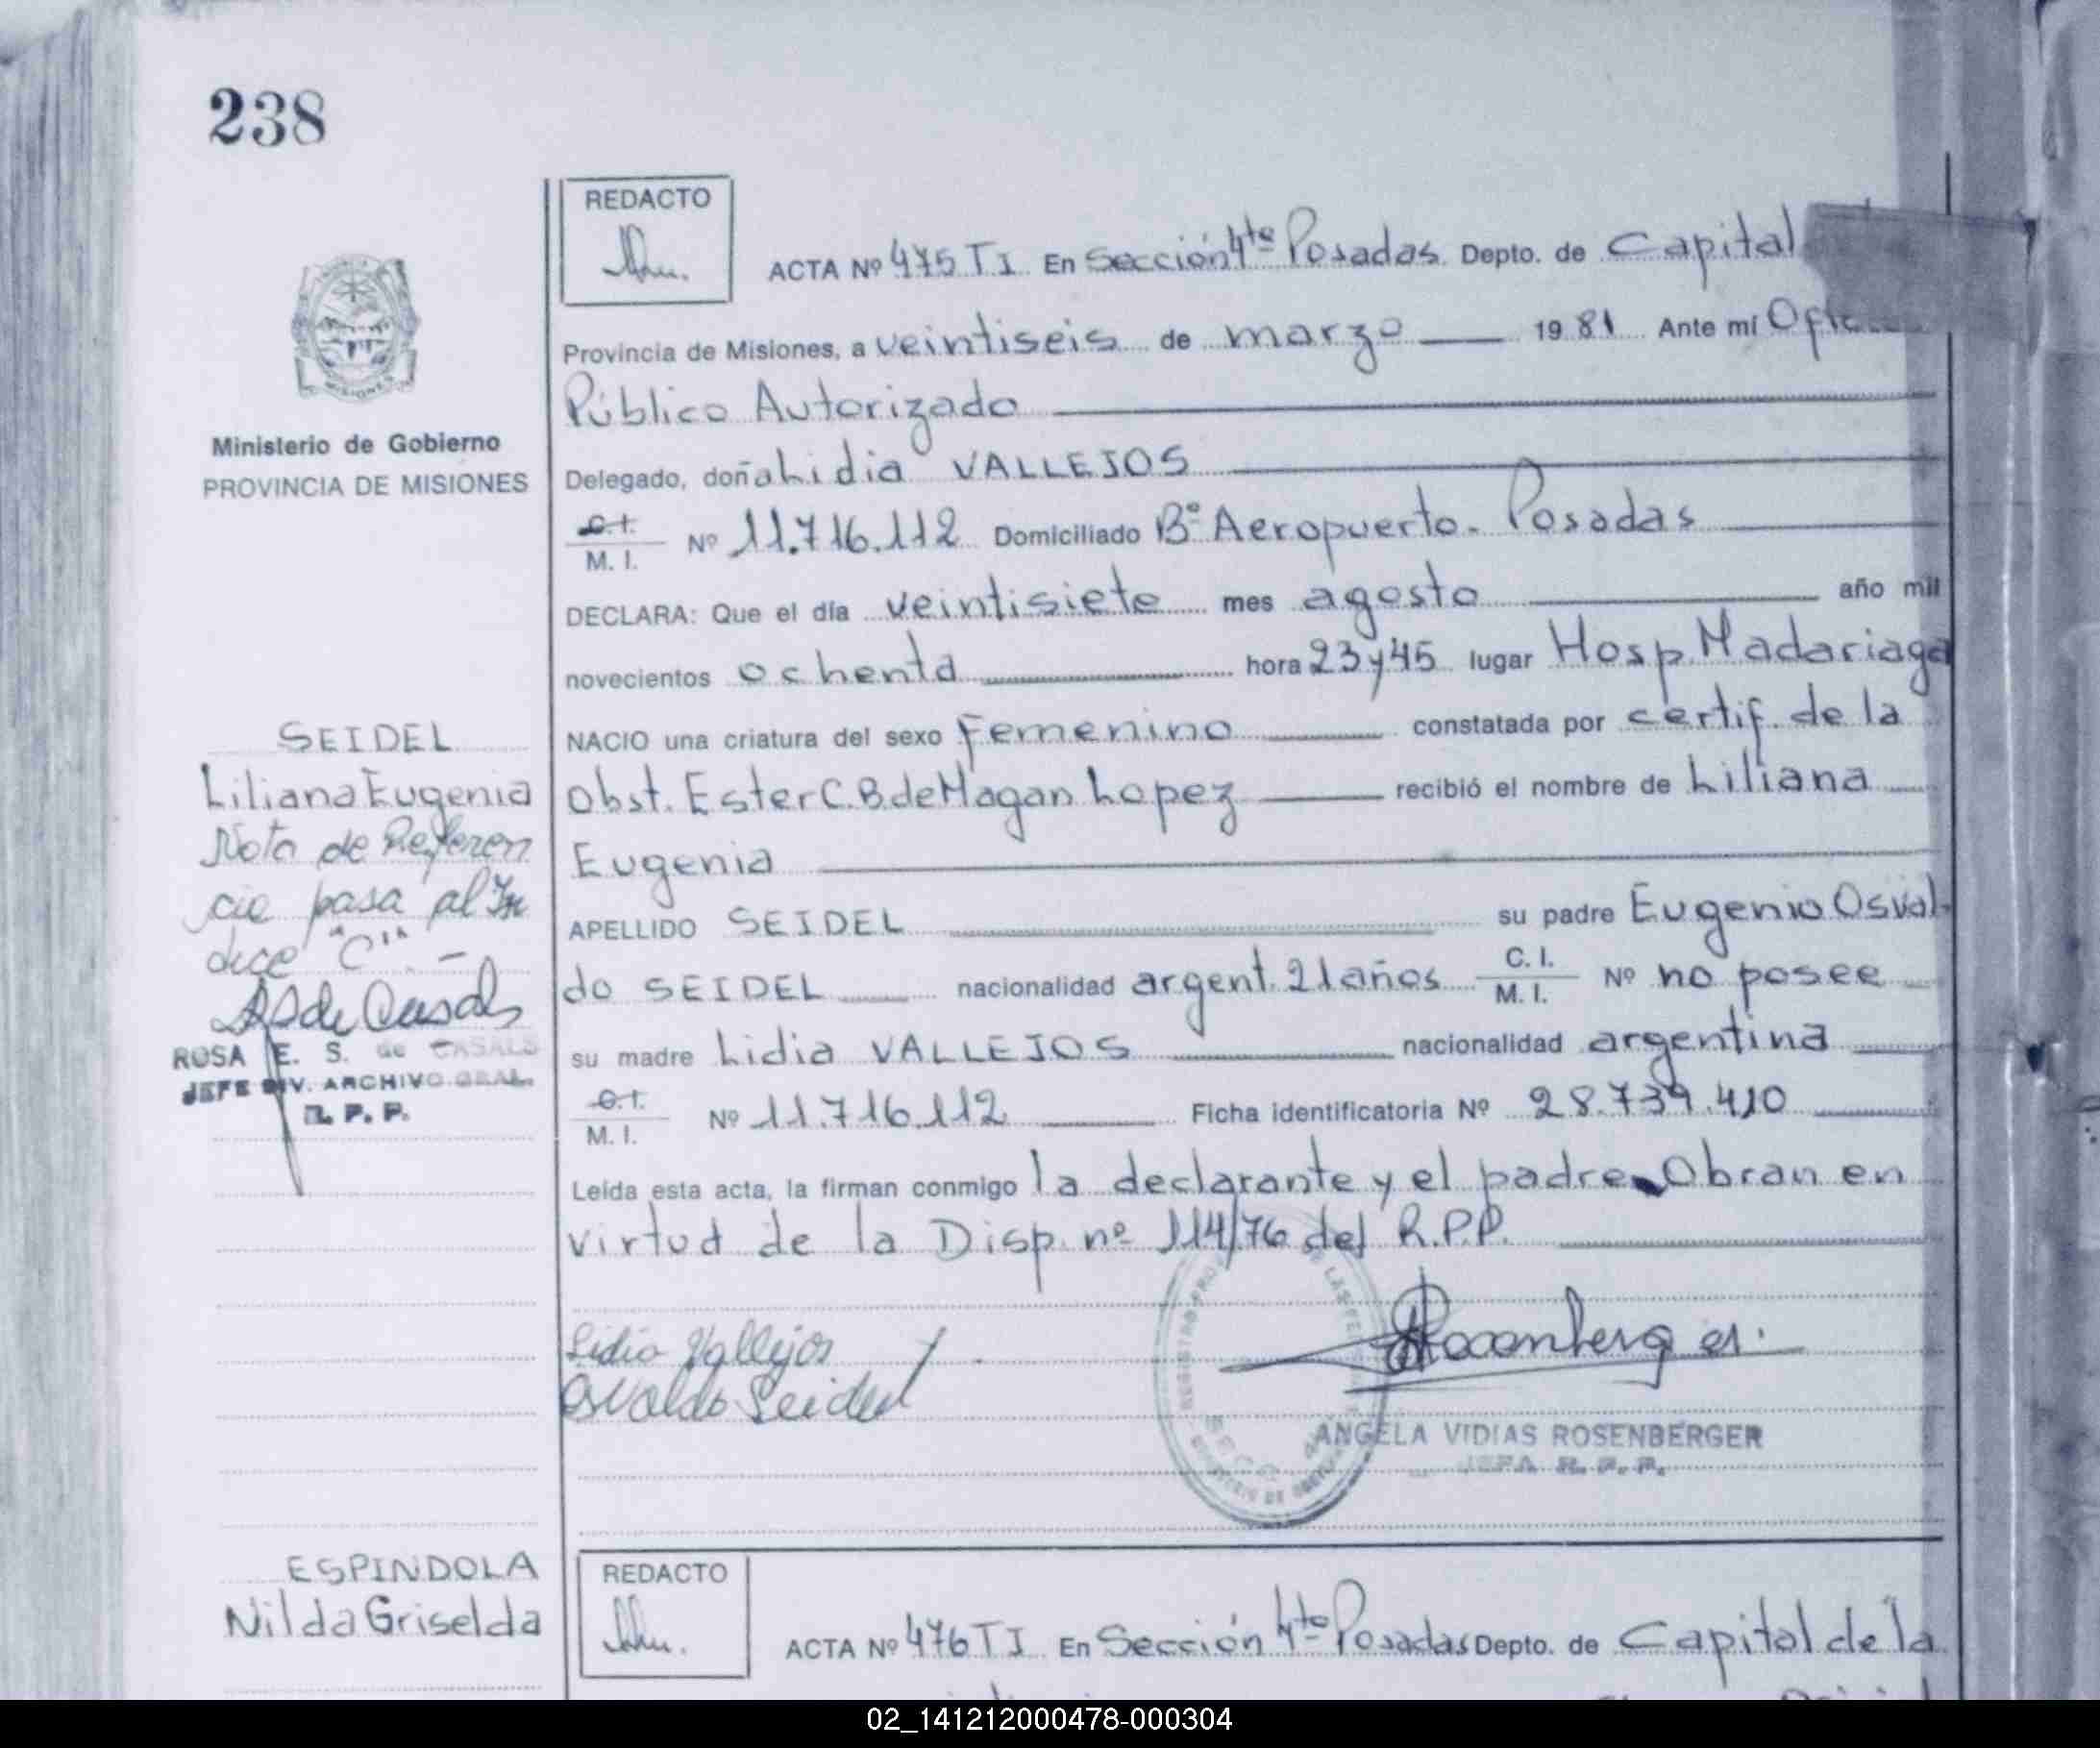 238
REDACTO
ACTA Nº 475 TI En Sección 4ta Posadas Depto. de Capital
Provincia de Misiones, a veintiseis de marzo 1981 Ante mí
Público Autorizado
Delegado, doña Lidia VALLEJOS
C.I.
M. I. Nº 11.716.112 Domiciliado Bº Aeropuerto - Posadas
DECLARA: Que el día veintisiete mes agosto año mil
novecientos ochenta hora 23 y 45 lugar Hosp. Madariaga
NACIO una criatura del sexo Femenino constatada por certif. de la
Obst. Ester C. B. de Magan Lopez recibió el nombre de Liliana
Eugenia
APELLIDO SEIDEL su padre Eugenio Osval-
do SEIDEL nacionalidad argent. 21 años C. I. M. I. Nº no posee
su madre Lidia VALLEJOS nacionalidad argentina
C.I.
M. I. Nº 11.716.112 Ficha identificatoria Nº 28.739.410
Leída esta acta, la firman conmigo la declarante y el padre. Obran en
virtud de la Disp. nº 114/76 del R.P.P.
Lidia Vallejos
Osvaldo Seidel
Rosenberger
ANGELA VIDIAS ROSENBERGER
JEFA R. P. P.
MISIONES
Ministerio de Gobierno
PROVINCIA DE MISIONES
SEIDEL
Liliana Eugenia
Nota de Referen
cia pasa al In
dice "C". -
ROSA E. S. de CASALS
JEFE DIV. ARCHIVO GRAL.
R. P. P.
ESPINDOLA
Nilda Griselda
REDACTO
ACTA Nº 476 TI En Sección 4ta Posadas Depto. de Capital de la
02_141212000478-000304